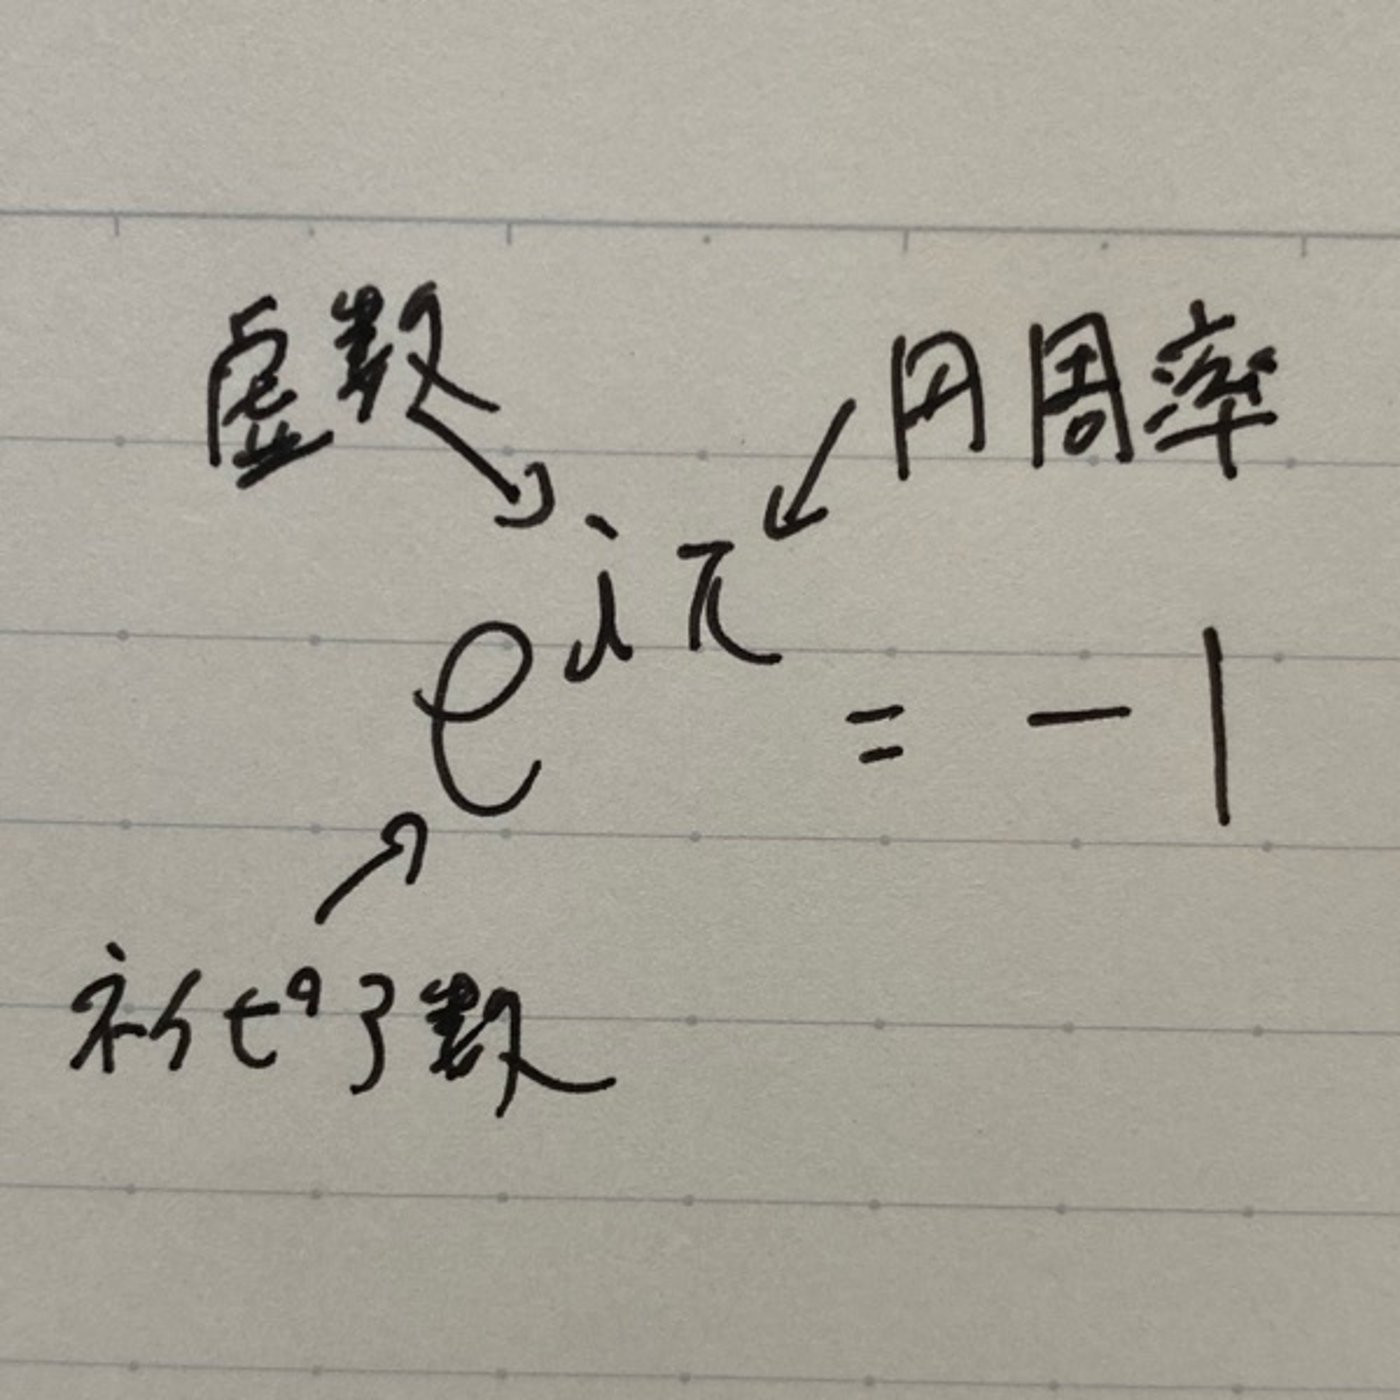 虚数 円周率
e^{iπ} = -1
ネイピア数